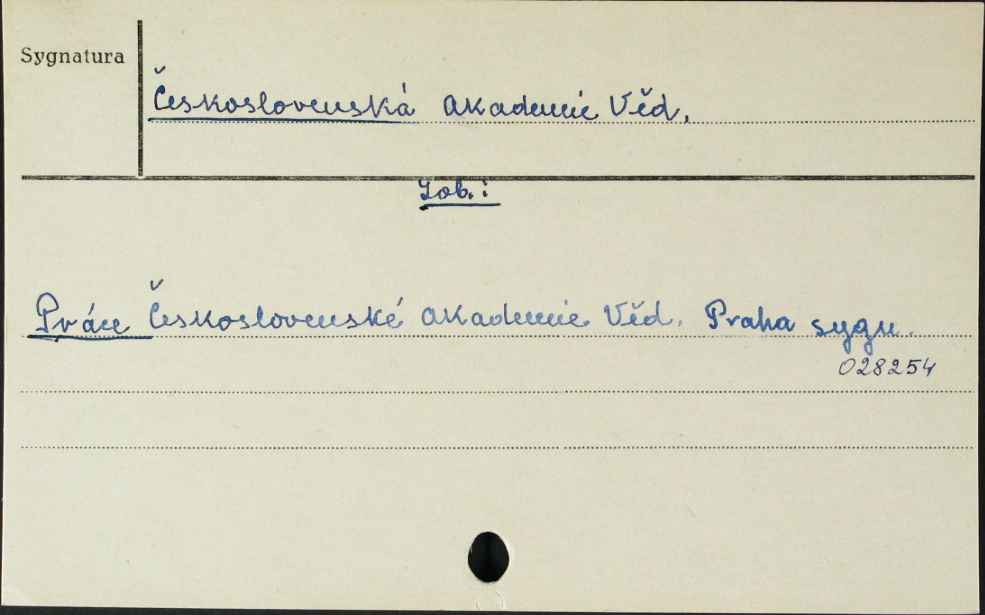 Sygnatura
Československá akademie Věd.
Zob.:
Práce Československé akademie Věd. Praha sygn.
028254